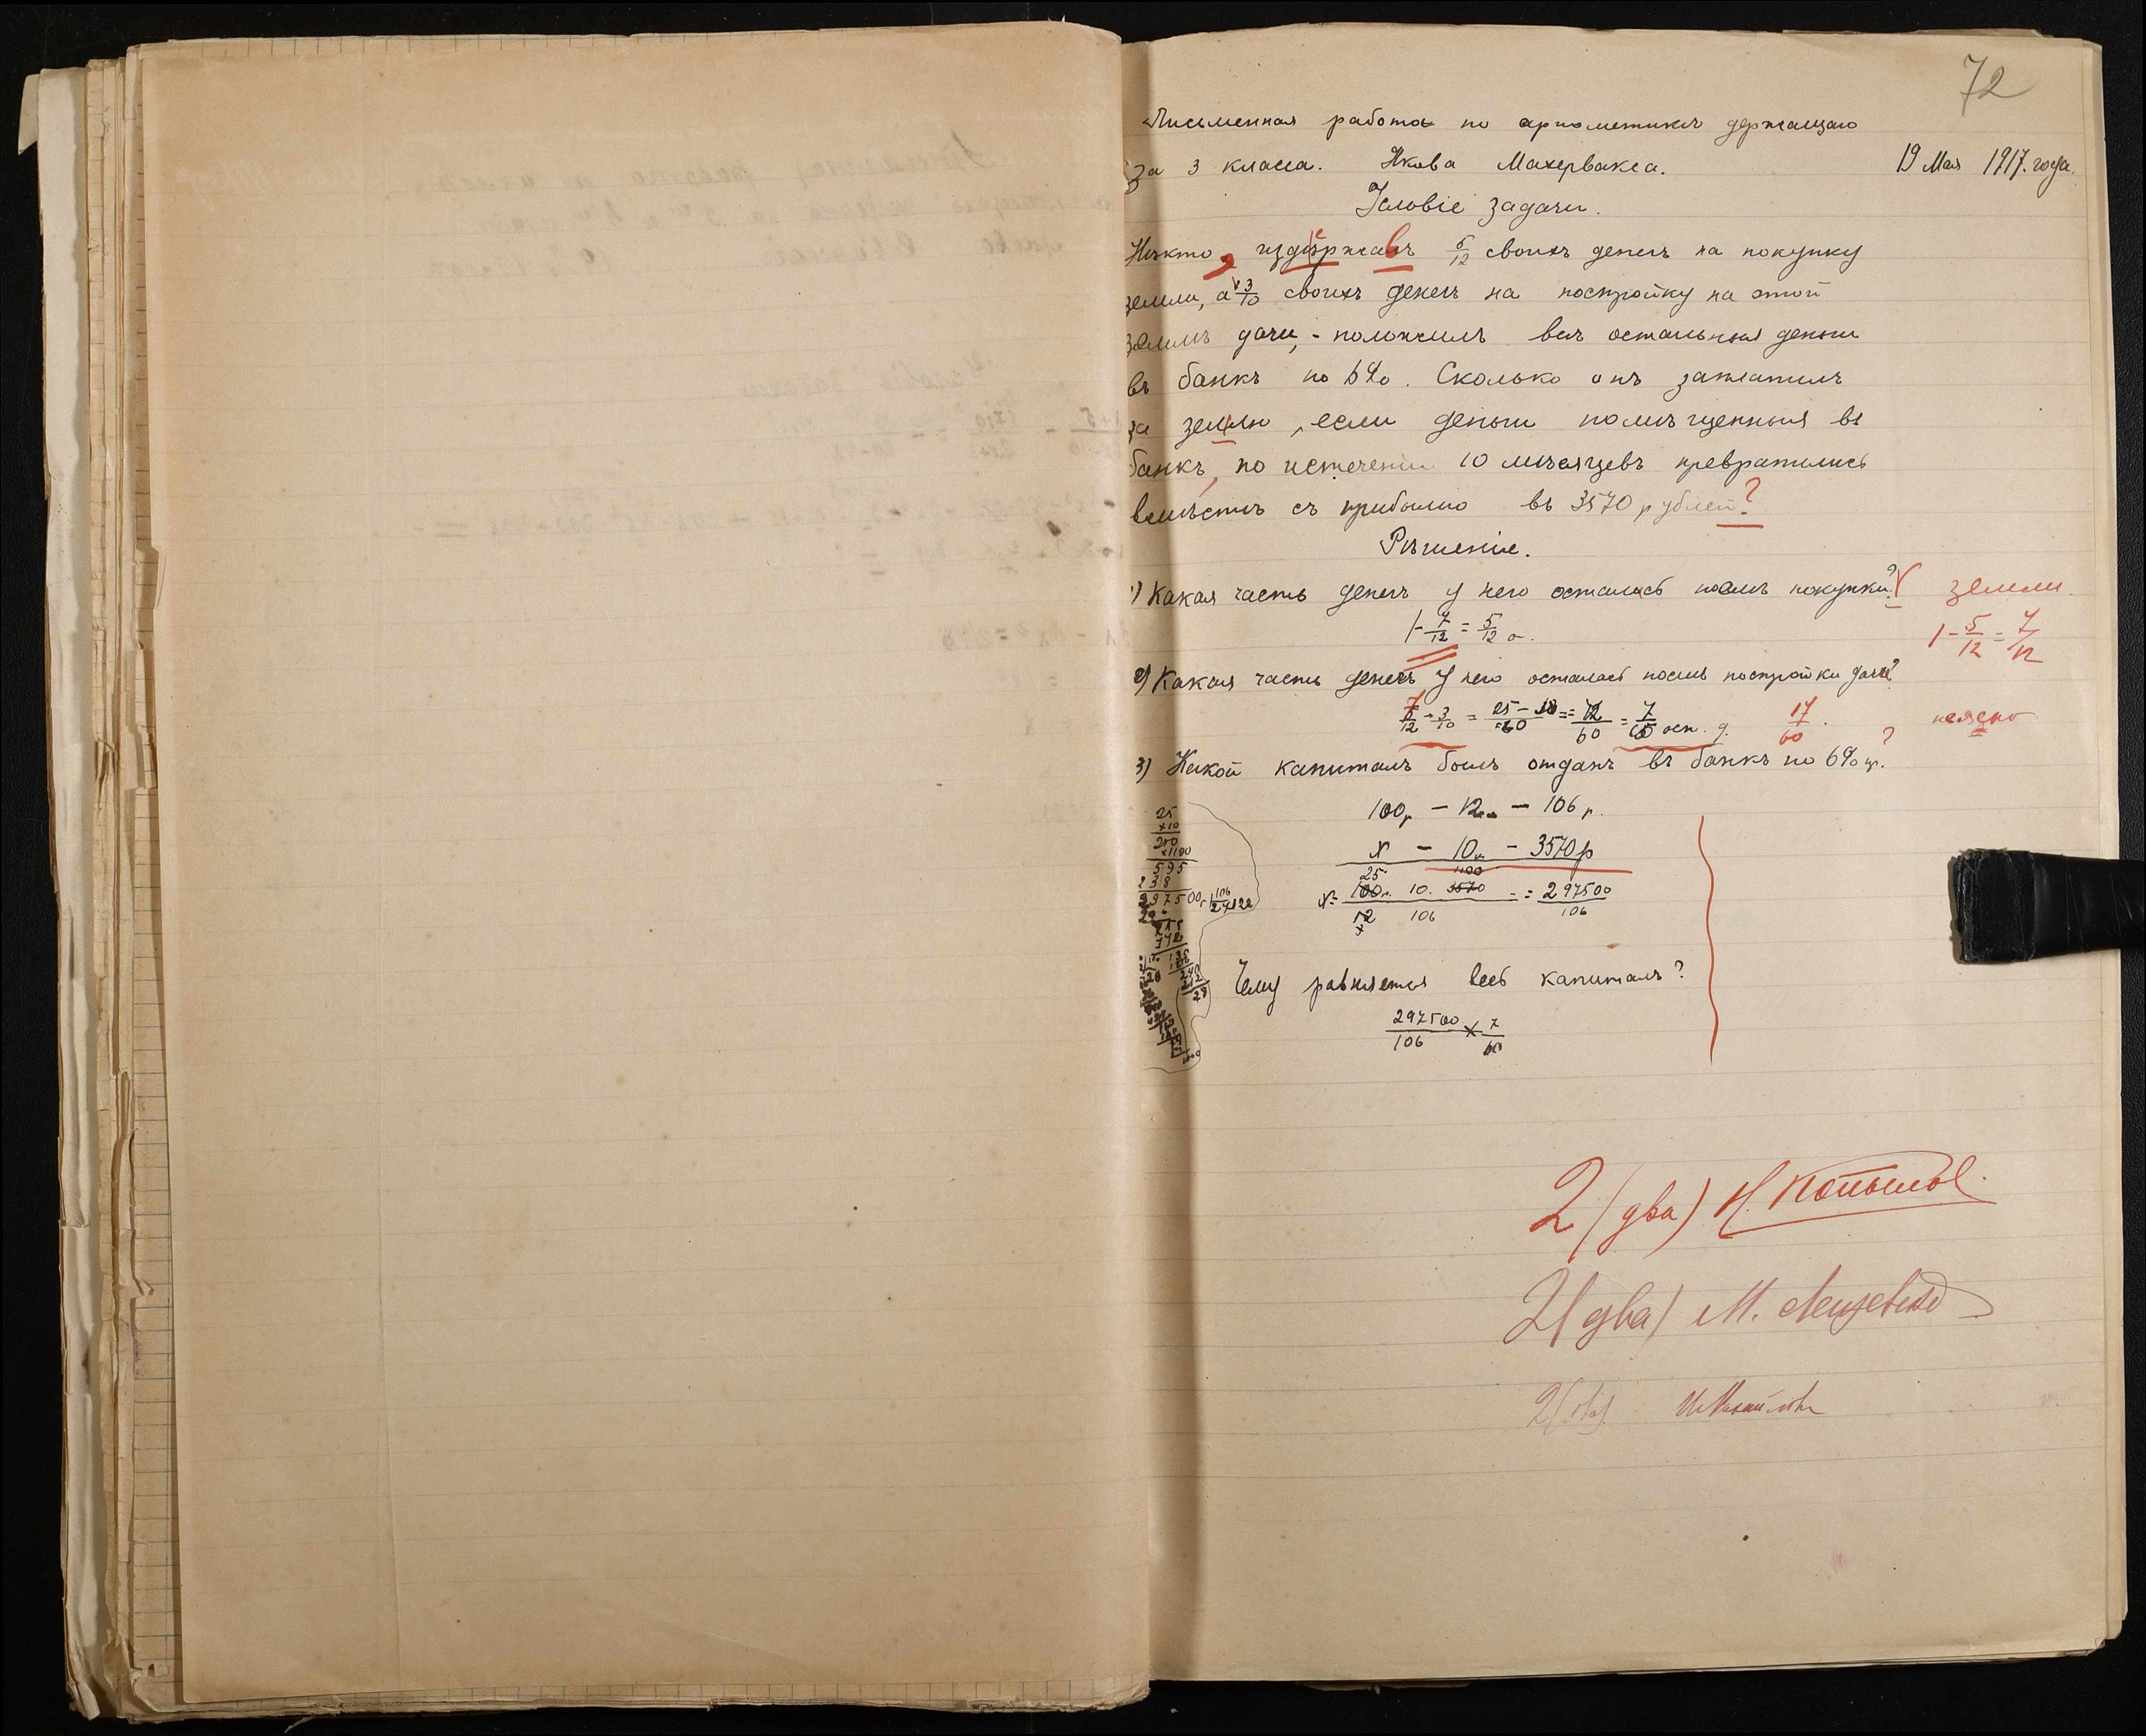 72
Письменная работа по ариѳметикѣ держащаго
за 3 класса. Якова Махервакса.
19 Мая 1917. года.
Условіе задачи.
Нѣкто, издержавъ 5/12 своихъ денегъ на покупку
земли, а 3/10 своихъ денегъ на постройку на этой
землѣ дачи, - положилъ всѣ остальныя деньги
въ банкъ по 6%. Сколько онъ заплатилъ
за землю, если деньги помѣщенныя въ
банкъ, по истеченіи 10 мѣсяцевъ превратились
вмѣстѣ съ прибылью въ 3570 рублей?
Рѣшеніе.
1) Какая часть денегъ у него осталась послѣ покупки? земли
1 - 7/12 = 5/12 о.
1 - 5/12 = 7/12
2) Какая часть денегъ у него осталась послѣ постройки дачи?
5/12 - 3/10 = 25 - 18/60 = 12/60 = 7/60 ост. д.
17/60.
неясно
3) Какой капиталъ былъ отданъ въ банкъ по 6% г.?
100 р - 12 м - 106 р.
x - 10 м - 3570 р
25 1190
x = 100. 10. 3570 / 12 106 = 297500 / 106
25
×10
250
×1190
595
238
297500
Чему равняется весь капиталъ?
297500/106 × 7/60
2 (два) Н. Копыловъ
2 (два) М.
2 (два)